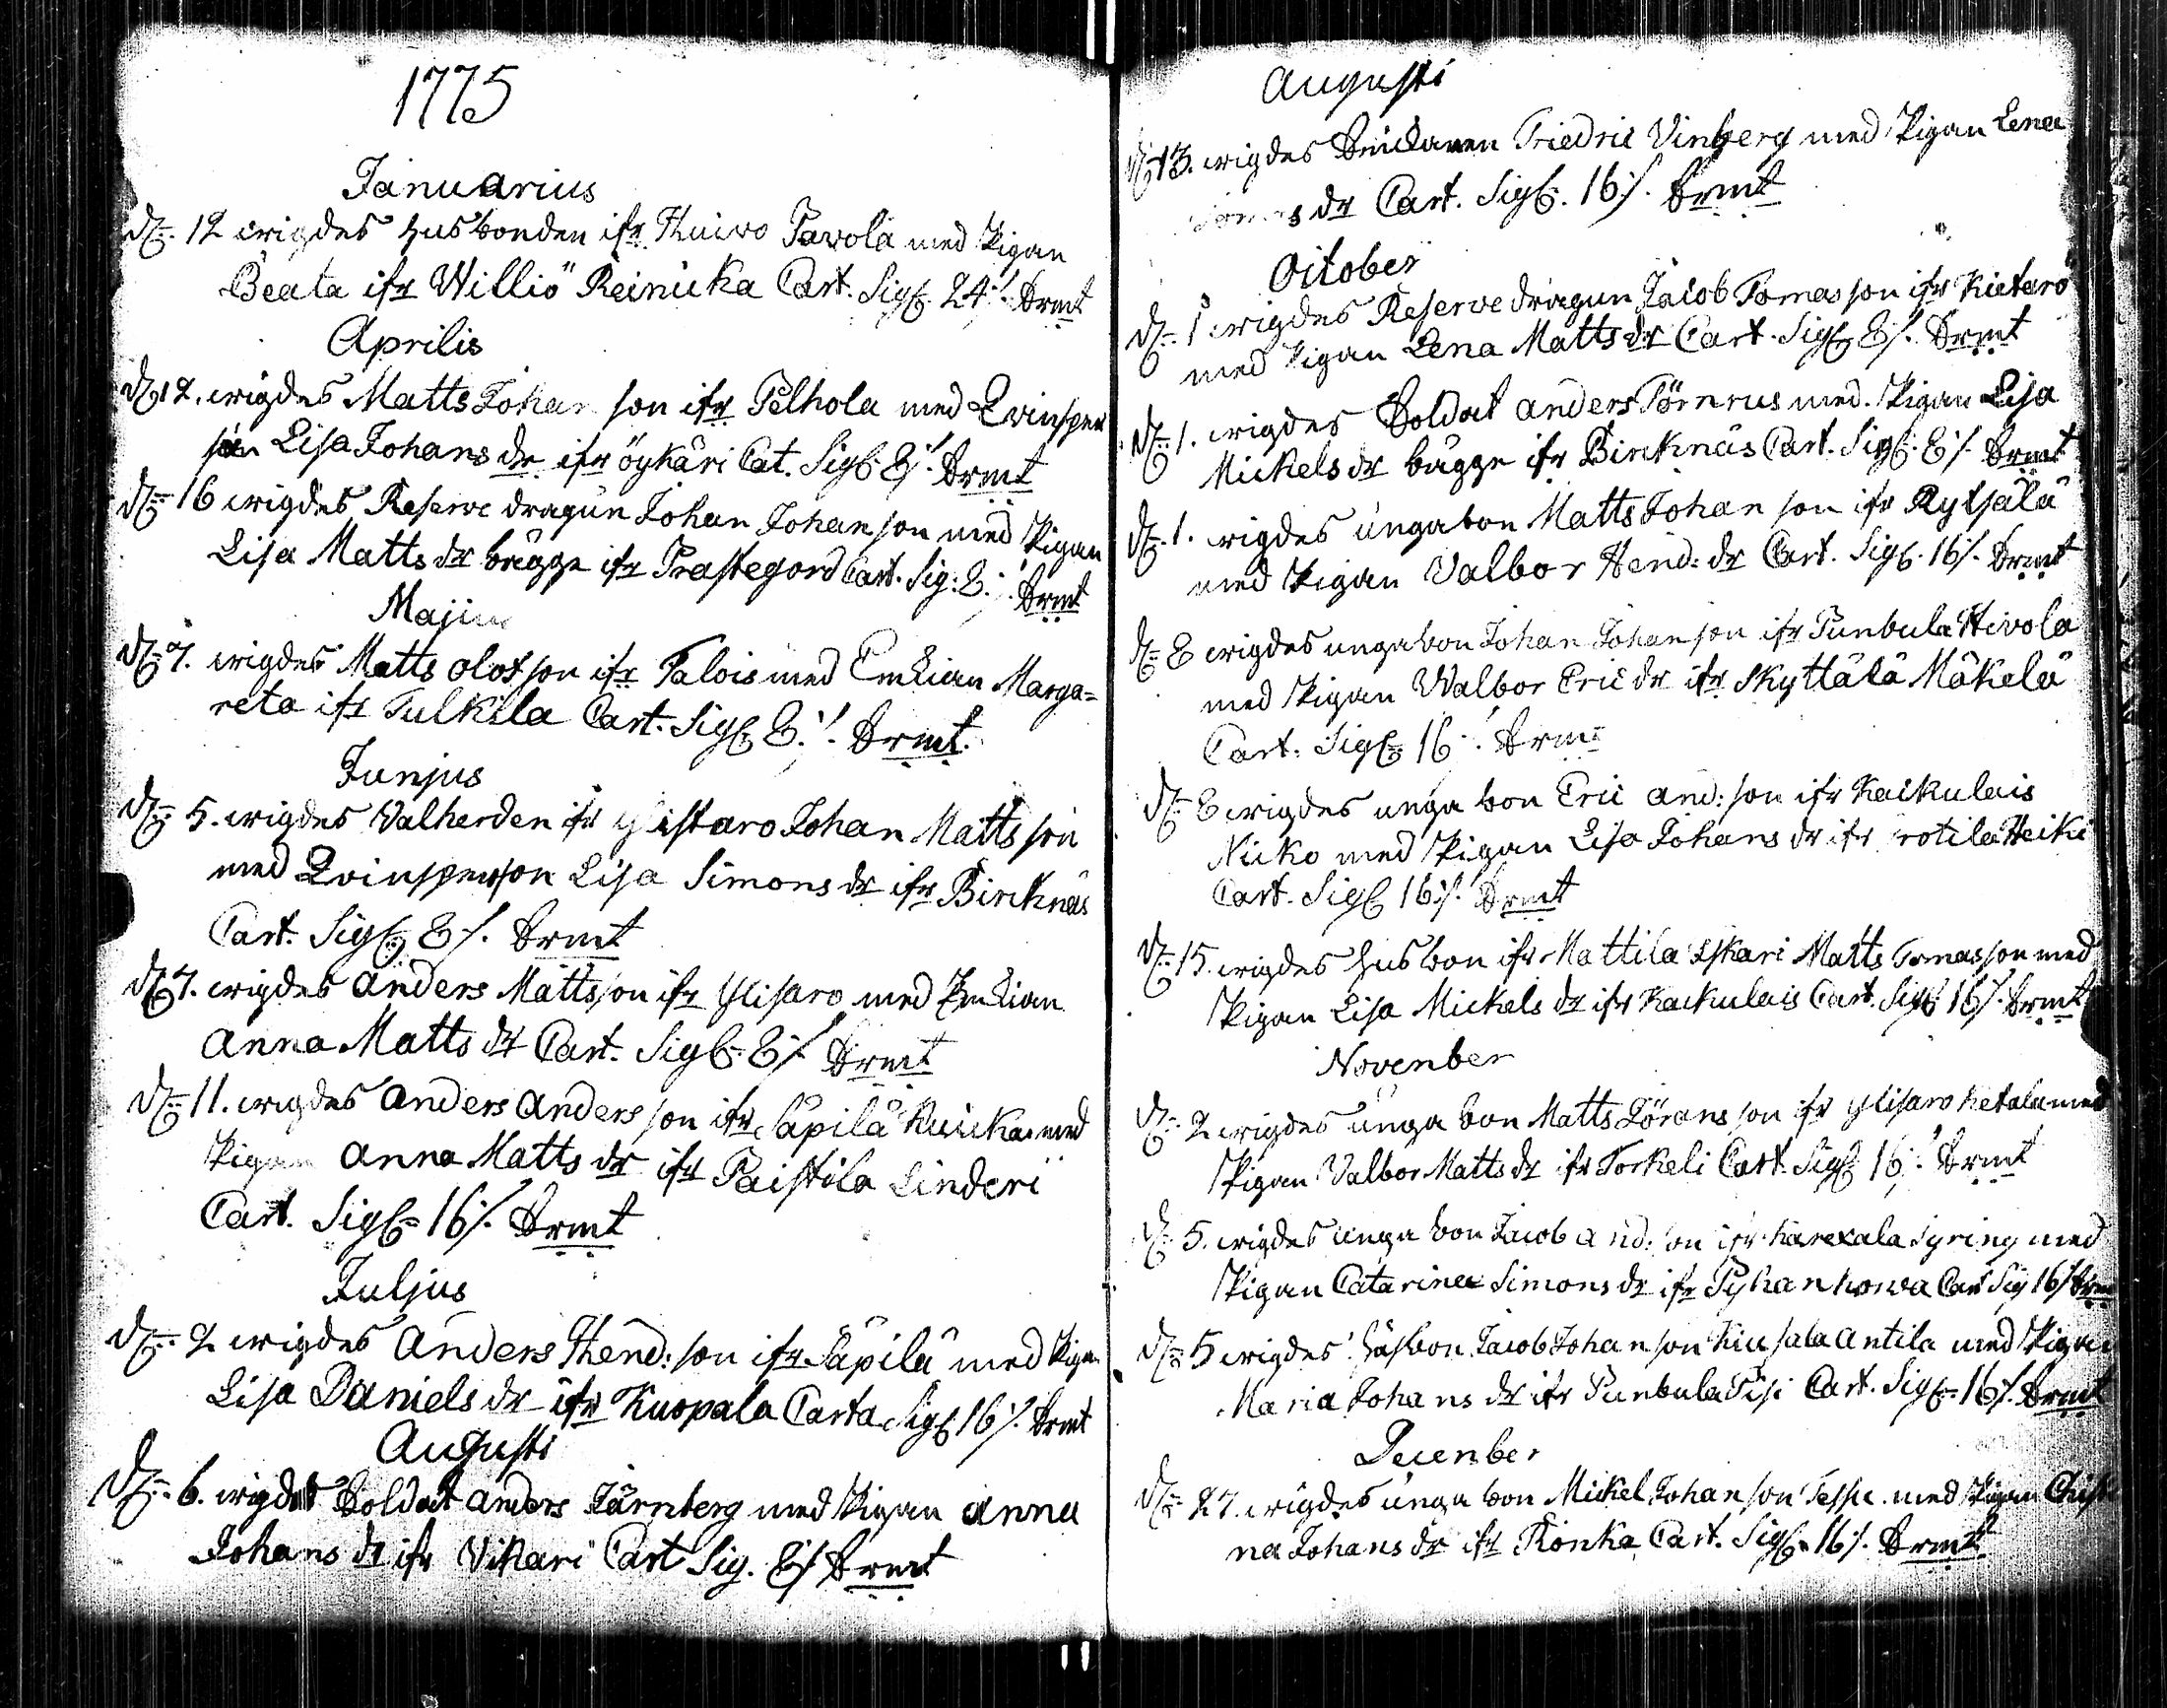 1775
Januarius
d. 12 wigdes husbonden ifr Kuivo Pavola med Pigan
Beata ifr Williö Reinicka Cart. Sigl: 24 ./. Srmt
Aprilis
d. 12. wigdes Matts Johan son ifr Pelhola med Qvinsper
son Lisa Johans dr ifr öykäri Cat. Sigl: 8 ./. Srmt
d. 16 wigdes Reserve dragun Johan Johan son med Pigan
Lisa Matts dr bägge ifr Prastegord Cart. Sig: 8 ./. Srmt
Majius
d. 7. wigdes Matts olof son ifr Talois med Enkian Marga=
reta ifr Tulkila Cart. Sigl: 8 ./. Srmt.
Junjus
d. 5. wigdes Valherden ifr ylistaro Johan Matts son
med Qvinsperson Lisa Simons dr ifr Bircknäs
Cart. Sigl: 8 ./. Srmt
d. 7. wigdes Anders Matts son ifr ylisaro med Enkian
Anna Matts dr Cart. Sigl: 8 ./. Srmt
d. 11. wigdes Anders Anders son ifr Säpilä Kusicka med
Pigan Anna Matts dr ifr Paistila Linderi
Cart. Sigl: 16 ./. Srmt
Juljus
d. 2 wigdes Anders Hend: son ifr Säpilä med Pigan
Lisa Daniels dr ifr Kuopala Carta Sigl 16 ./. Srmt
Augusti
d. 6. wigdes Soldat Anders Järnberg med Pigan Anna
Johans dr ifr Vikari Cart Sig. 8 ./. Srmt
Augusti
d. 13. wigdes Friedric Vinberg med Pigan Lena
dr Cart. Sigl: 16 ./. Srmt
October
d. 1 wigdes Reserve dragun Jacob Tomas son ifr Kietarö
med Pigan Lena Matts dr Cart. Sigl 8 ./. Srmt
d. 1. wigdes Soldat anders Törnrus med Pigan Lisa
Mickels dr bägge ifr Bircknäs Cart. Sigl: 8 ./. Srmt
d. 1. wigdes unga bon Matts Johan son ifr Rytsälä
med Pigan Valbor Hend: dr Cart. Sigl: 16 ./. Srmt
d. 8 wigdes unga bon Johan Johan son ifr Punbula Hivola
med Pigan Walbor Eric dr ifr Skyttälä Mäkelä
Cart: Sigl: 16 ./. Srmt
d. 8 wigdes unga bon Eric and: son ifr Kaikulais
Nicko med Pigan Lisa Johans dr ifr Heiki
Cart. Sigl 16 ./. Srmt
d. 15. wigdes husbon ifr Mattila Matts Tomas son med
Pigan Lisa Mickels dr ifr Kackulais Cart. Sigl: 16 ./. Srmt
Novenber
d. 2 wigdes unga bon Matts Jörans son ifr ylisaro Ketala med
Pigan Valbor Matts dr ifr Torkeli Cart. Sigl: 16 ./. Srmt
d. 5. wigdes unga bon Jacob And: son ifr Karexala Syring med
Pigan Catarina Simons dr ifr Pyhankorva Cart Sig 16 ./. Srmt
d. 5 wigdes husbon Jacob Johan son Kiusala Antila med Pigan
Maria Johans dr ifr Punbula Sisi Cart. Sigl: 16 ./. Srmt
Decenber
d. 27. wigdes unga bon Mickel Johan son Tessu med Pigan Christi
na Johans dr ifr Ronka Cart. Sigl: 16 ./. Srmt